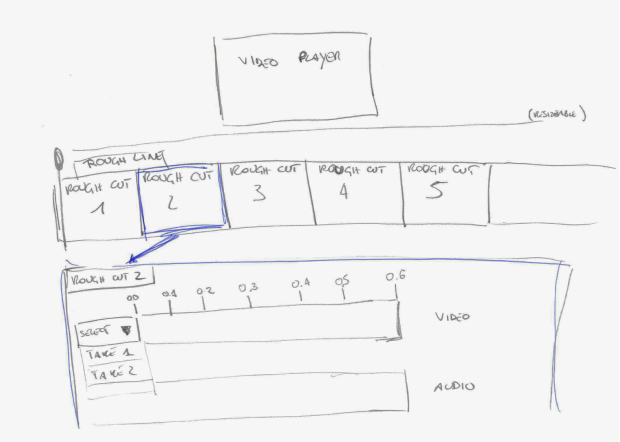 VIDEO PLAYER
(RESIZEABLE)
ROUGH LINE
ROUGH CUT ROUGH CUT ROUGH CUT ROUGH CUT ROUGH CUT
1 2 3 4 5
ROUGH CUT 2
0.0 0.1 0.2 0.3 0.4 0.5 0.6
SELECT ▼ VIDEO
TAKE 1
TAKE 2
AUDIO